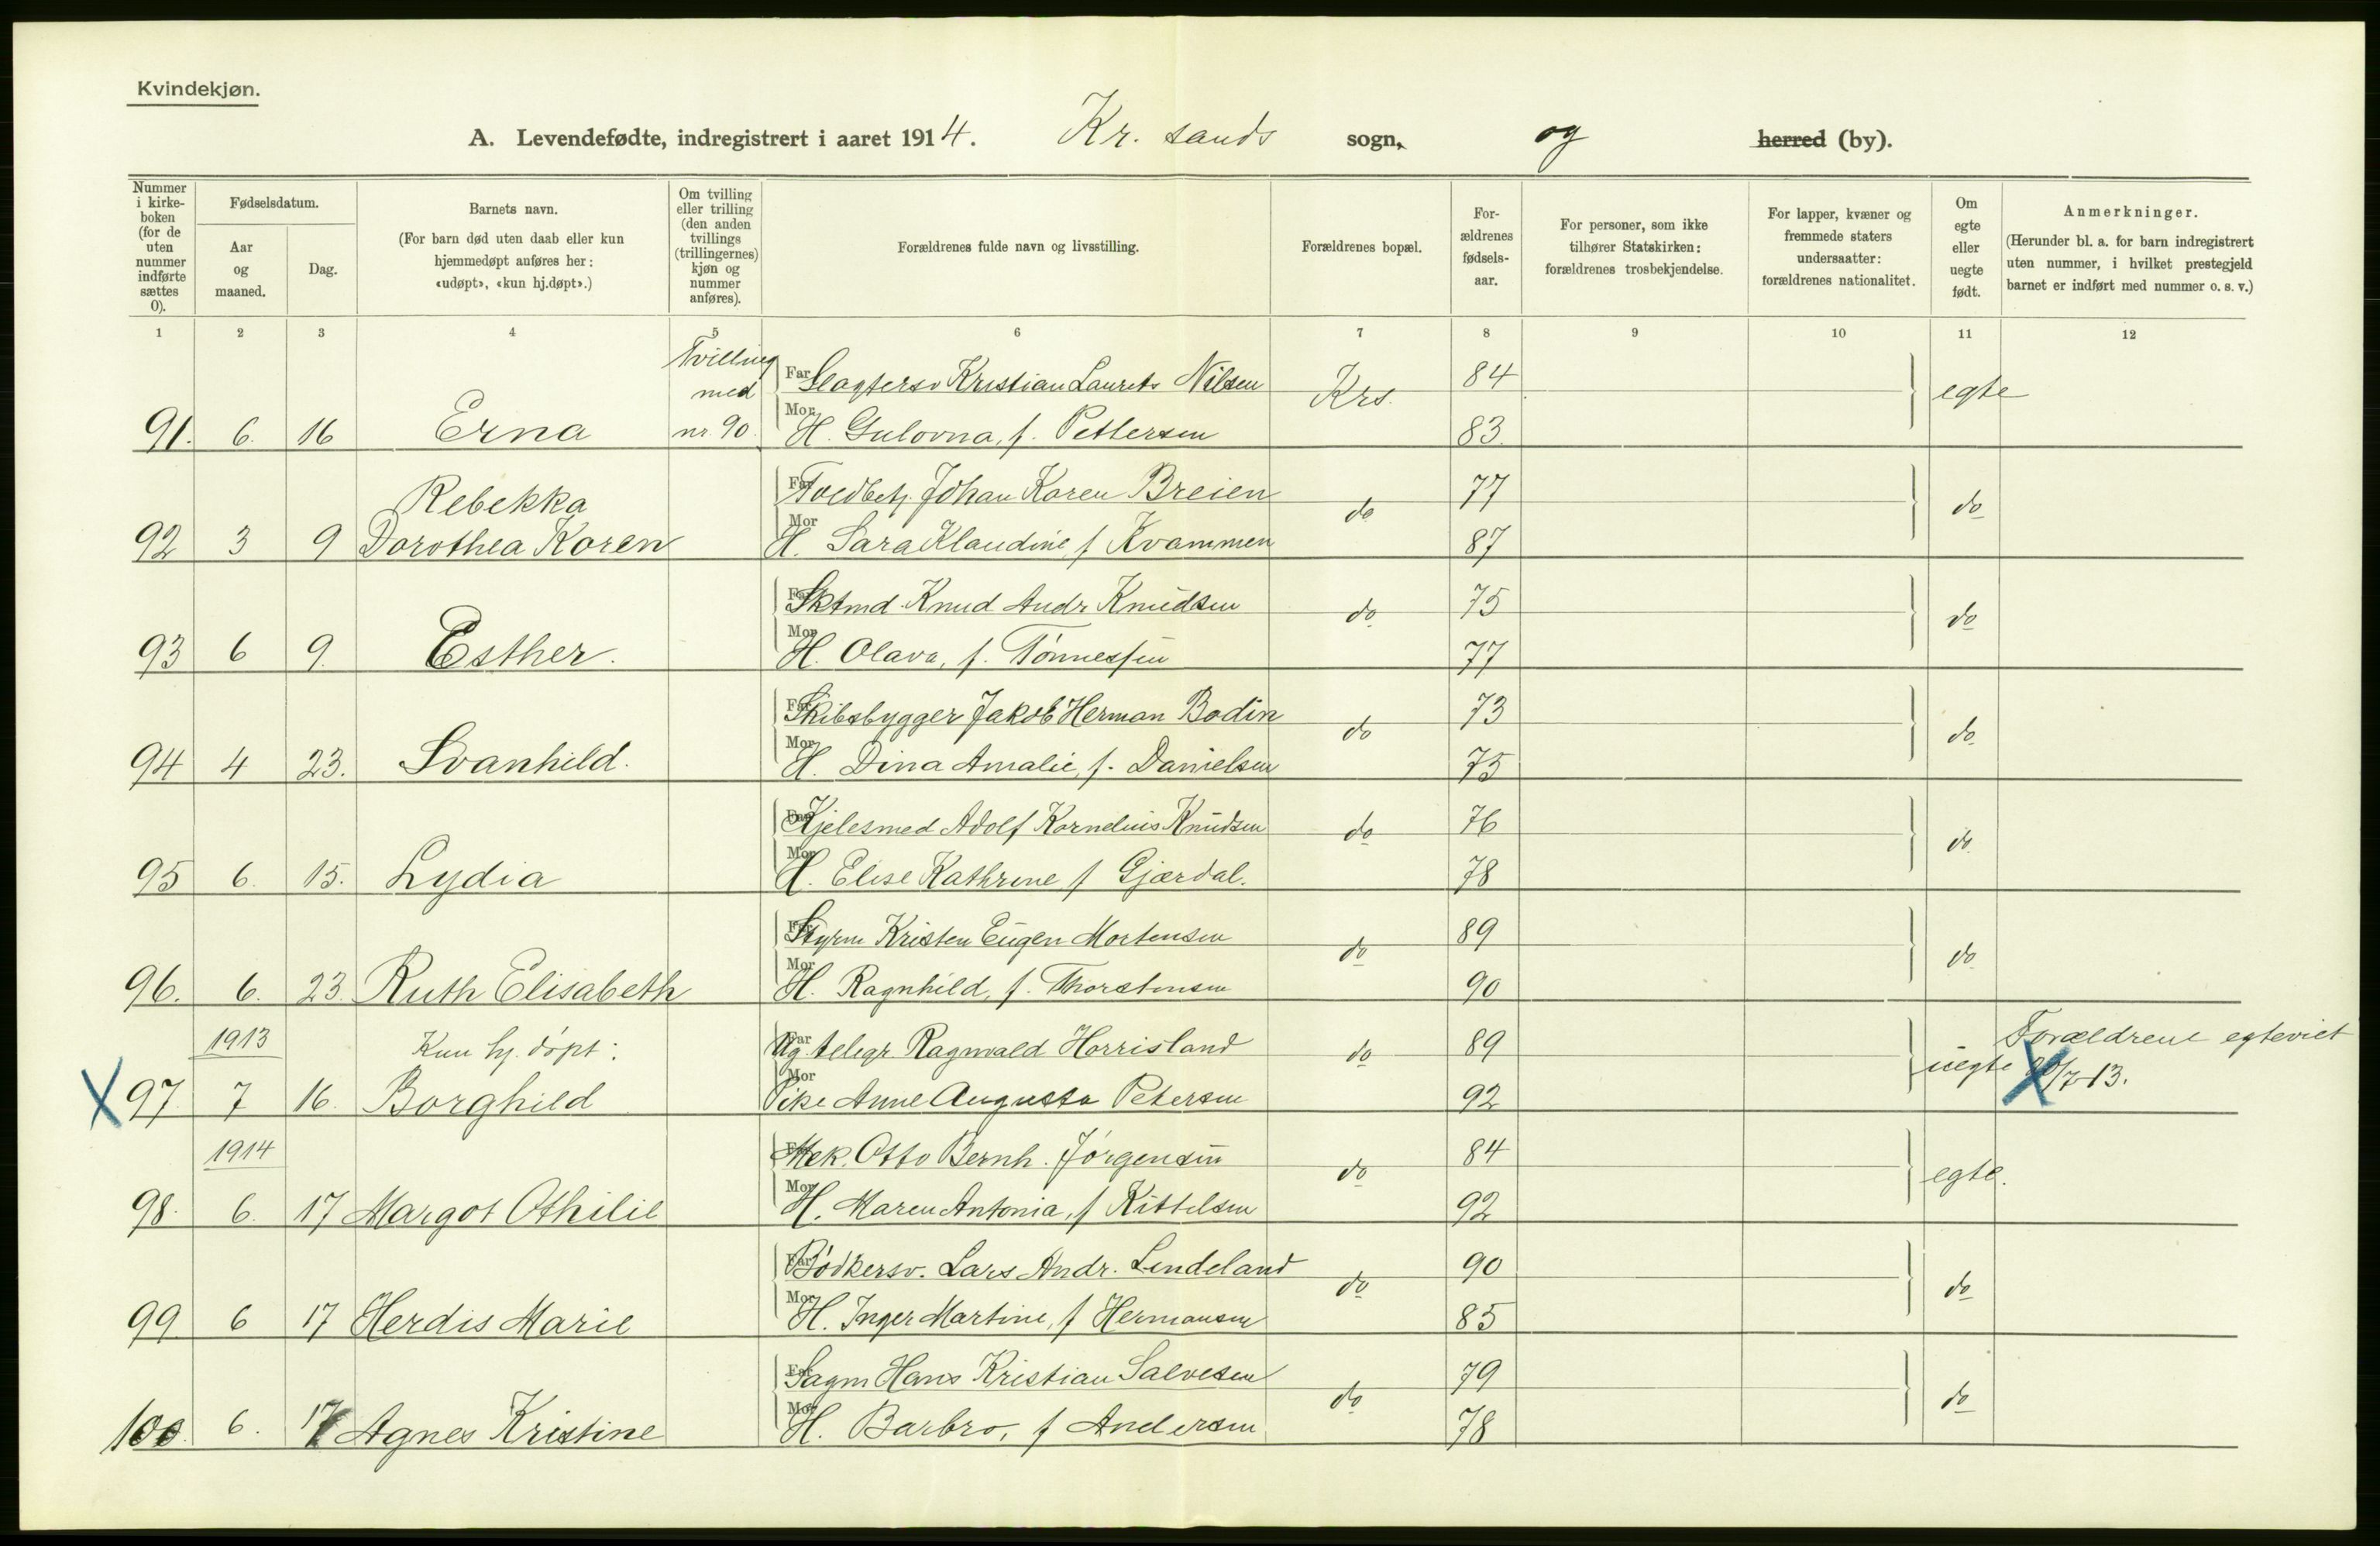 Kvindekjøn.
A. Levendefødte, indregistrert i aaret 1914. Kr. sands sogn, og herred (by).
Nummer i kirke-boken (for de uten nummer indførte sættes 0).
Fødselsdatum.
Aar og maaned.
Dag.
Barnets navn.
(For barn død uten daab eller kun hjemmedøpt anføres her: «udøpt», «kun hj.døpt».)
Om tvilling eller trilling (den anden tvillings (trillingernes) kjøn og nummer anføres).
Forældrenes fulde navn og livsstilling.
Forældrenes bopæl.
For-ældrenes fødsels-aar.
For personer, som ikke tilhører Statskirken: forældrenes trosbekjendelse.
For lapper, kvæner og fremmede staters undersaatter: forældrenes nationalitet.
Om egte eller uegte født.
Anmerkninger.
(Herunder bl. a. for barn indregistrert uten nummer, i hvilket prestegjeld barnet er indført med nummer o. s. v.)
1 2 3 4 5 6 7 8 9 10 11 12
Tvilling med nr. 90.
Far Slagtersv Kristian Laurets Nilsen Krs. 84 egte
91. 6. 16 Erna Mor H. Gulovna, f. Pettersen 83.
Rebekka Far Johan Koren Breien do 77 do
92 3 9 Dorothea Koren Mor H. Sara Klaudine f Kvammen 87
Far Sktmd Knud Andr Knudsen do 75 do
93 6 9. Esther. Mor H. Olava, f. Tønnessen 77
Far Skibsbygger Jakob Herman Bodin do 73 do
94 4 23. Svanhild. Mor H. Dina Amalie, f. Danielsen 75
Far Kjelesmed Adolf Kornelius Knudsen do 76 do
95 6. 15. Lydia Mor H. Elise Kathrine f Gjærdal. 78
Far Styrm Kristen Eugen Mortensen do 89 do
96. 6. 23. Ruth Elisabeth Mor H. Ragnhild, f. Thorstensen 90
1913 Kun hj. døpt: Far telegr Ragnvald Horrisland do 89 uegte Forældrene egteviet
X 97 7 16. Borghild Mor Pike Anne Augusta Petersen 92 X /7-13.
1914 Far Mek. Otto Bernh. Jørgensen do 84 egte.
98. 6. 17 Margot Othilie Mor H. Maren Antonia, f Kittelsen 92
Far Bødkersv. Lars Andr. Lendeland do 90 do
99 6 17 Herdis Marie Mor H. Inger Martine, f Hermansen 85
Far Sagm Hans Kristian Salvesen do 79 do
100. 6. 17 Agnes Kristine Mor H. Barbro, f Andersen 78